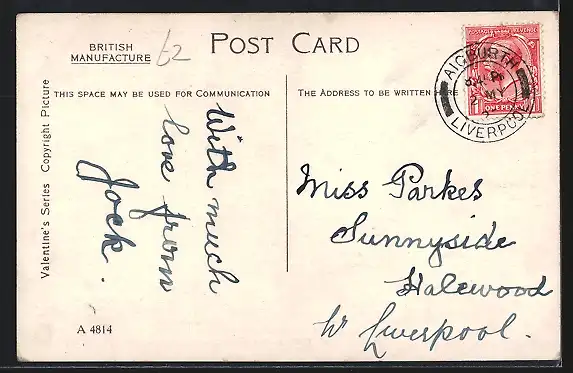 BRITISH
MANUFACTURE
£2
POST CARD
THIS SPACE MAY BE USED FOR COMMUNICATION
THE ADDRESS TO BE WRITTEN HERE
POSTAGE REVENUE
ONE PENNY
AIGBURTH
2 MY
LIVERPOOL
Valentine's Series Copyright Picture
With much
love from
Jock.
Miss Parkes
Sunnyside
Halewood
Nr Liverpool.
A 4814